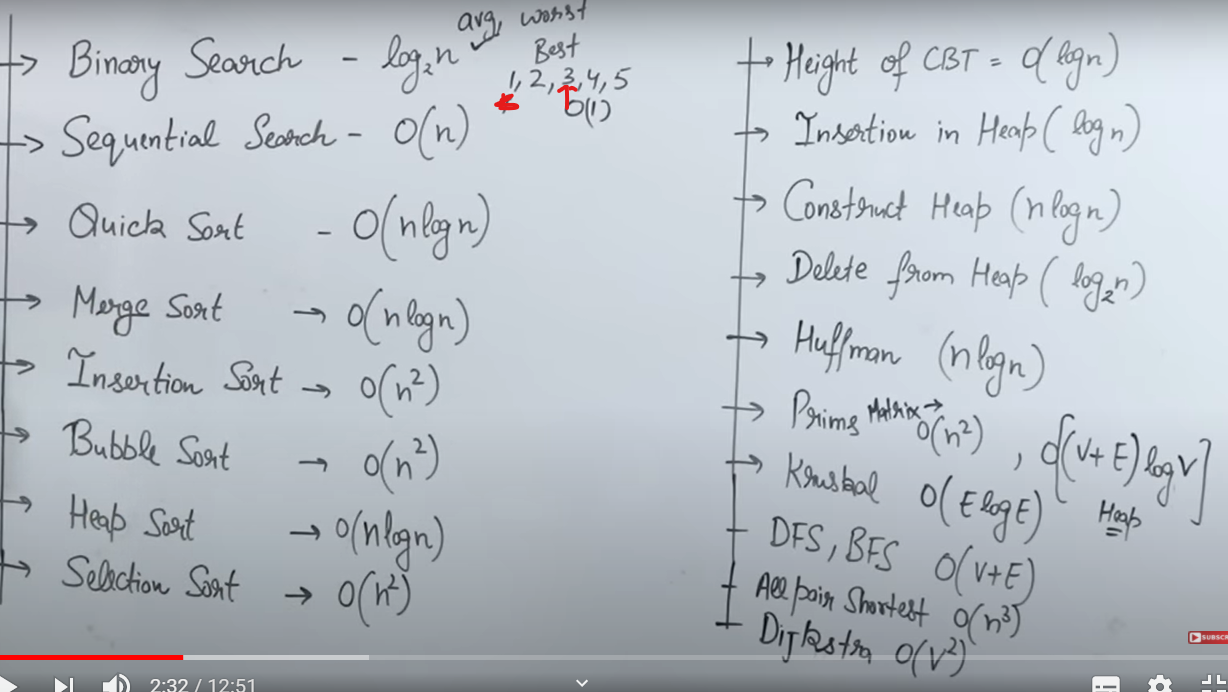 avg, worst
Binary Search - log₂n
Best
1, 2, 3, 4, 5
O(1)
Sequential Search - O(n)
Quick Sort - O(nlogn)
Merge Sort → O(nlogn)
Insertion Sort → O(n²)
Bubble Sort → O(n²)
Heap Sort → O(nlogn)
Selection Sort → O(n²)
Height of CBT = O(logn)
Insertion in Heap (logn)
Construct Heap (nlogn)
Delete from Heap (log₂n)
Huffman (nlogn)
Prims Matrix → O(n²), O[(V+E)logV]
Heap
Kruskal O(ElogE)
DFS, BFS O(V+E)
All pair shortest O(n³)
Dijkstra O(V²)
SUBSC
2:32 / 12:51